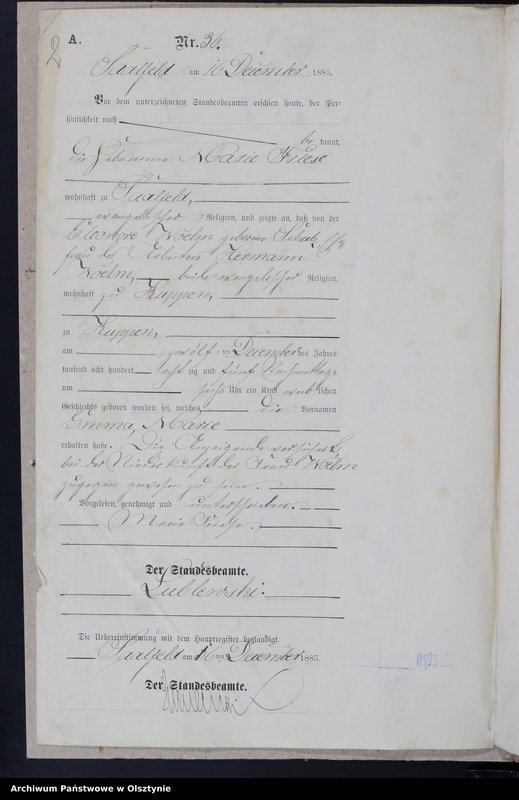 2
A. Nr. 36.
Saalfeld am 16 Dezember 1885.
Vor dem unterzeichneten Standesbeamten erschien heute, der Per-
sönlichkeit nach
be kannt,
die Hebamme Marie Friese
wohnhaft zu Saalfeld,
evangelischer Religion, und zeigte an, daß von der
Eleonore Wölm geborene Schulz, Ehe
frau des Arbeiters Hermann
Wölm, beide evangelischer Religion,
wohnhaft zu Kuppen,
zu Kuppen,
am zwölften Dezember des Jahres
tausend acht hundert acht zig und fünf Nachmittags
um sechs Uhr ein Kind weib lichen
Geschlechts geboren worden sei, welches die Vornamen
Emma, Marie
erhalten habe. Die Anzeigende versichert,
bei der Niederkunft der Frau Wölm
zugegen gewesen zu sein.
Vorgelesen, genehmigt und unterschrieben.
Marie Friese.
Der Standesbeamte.
Lublewski.
Die Uebereinstimmung mit dem Hauptregister beglaubigt.
Saalfeld am 16 ten Dezember 1885.
Der Standesbeamte.
Archiwum Państwowe w Olsztynie